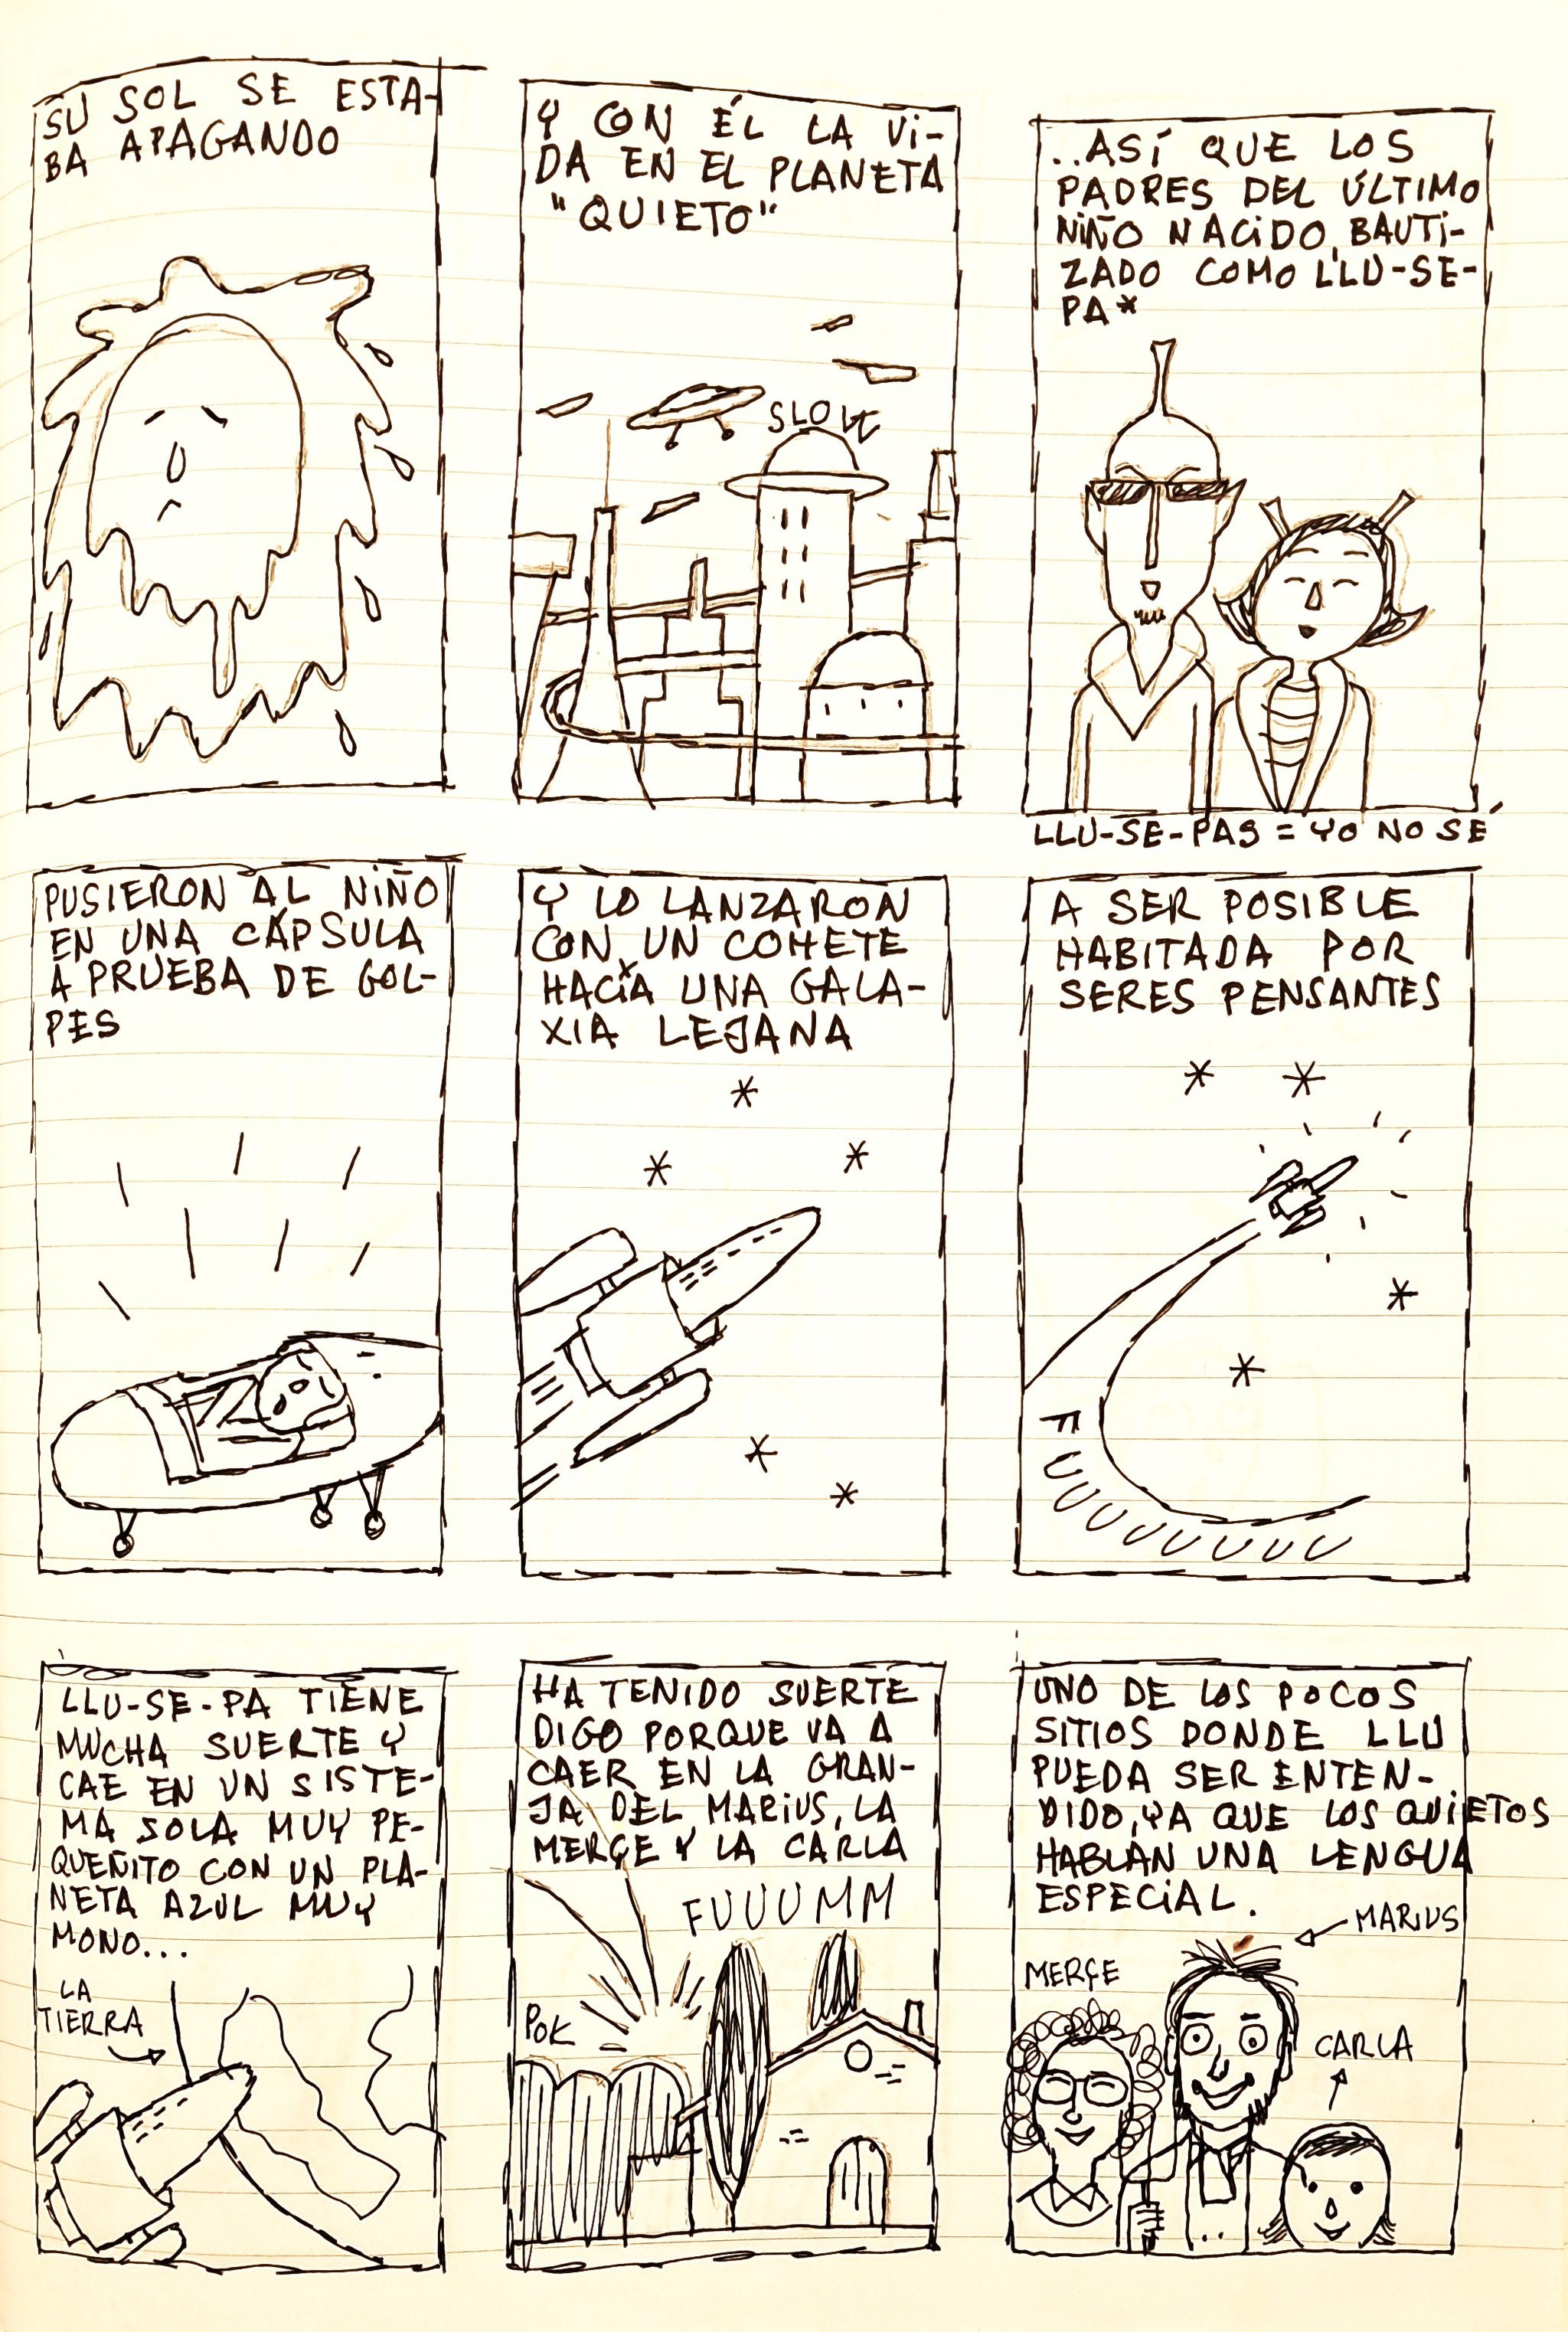 SU SOL SE ESTA-
BA APAGANDO
Y CON ÉL LA VI-
DA EN EL PLANETA
"QUIETO"
SLOW
..ASÍ QUE LOS
PADRES DEL ÚLTIMO
NIÑO NACIDO, BAUTI-
ZADO COMO LLU-SE-
PA*
LLU-SE-PAS = YO NO SÉ
PUSIERON AL NIÑO
EN UNA CÁPSULA
A PRUEBA DE GOL-
PES
Y LO LANZARON
CON UN COHETE
HACIA UNA GALA-
XIA LEJANA
A SER POSIBLE
HABITADA POR
SERES PENSANTES
FUUUUUUUUU
LLU-SE-PA TIENE
MUCHA SUERTE Y
CAE EN UN SISTE-
MA SOLA MUY PE-
QUEÑITO CON UN PLA-
NETA AZUL MUY
MONO...
LA
TIERRA
HA TENIDO SUERTE
DIGO PORQUE VA A
CAER EN LA GRAN-
JA DEL MARIUS, LA
MERÇE Y LA CARLA
FUUUMM
POK
UNO DE LOS POCOS
SITIOS DONDE LLU
PUEDA SER ENTEN-
DIDO, YA QUE LOS QUIETOS
HABLAN UNA LENGUA
ESPECIAL.
MARIUS
MERÇE
CARLA